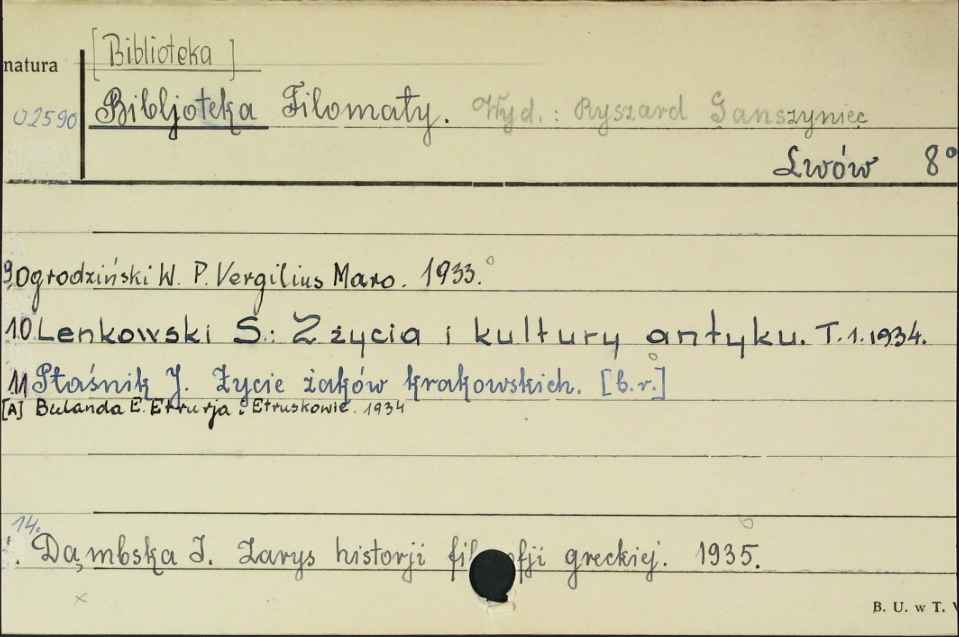 [Biblioteka]
natura
02590 Bibljoteka Filomaty. Wyd.: Ryszard Ganszyniec
Lwów 8°
9. Ogrodziński W. P. Vergilius Maro. 1933.
10 Lenkowski S.: Z życia i kultury antyku. T.1.1934.
11 Ptaśnik J. Życie żaków krakowskich. [b.r.]
[A] Bulanda E. Etrurja i Etruskowie. 1934
14.
Dąmbska I. Zarys historji fil fji greckiej. 1935.
B. U. w T.